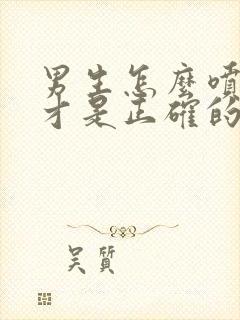 男生怎麼噴
才是正確的
吴質